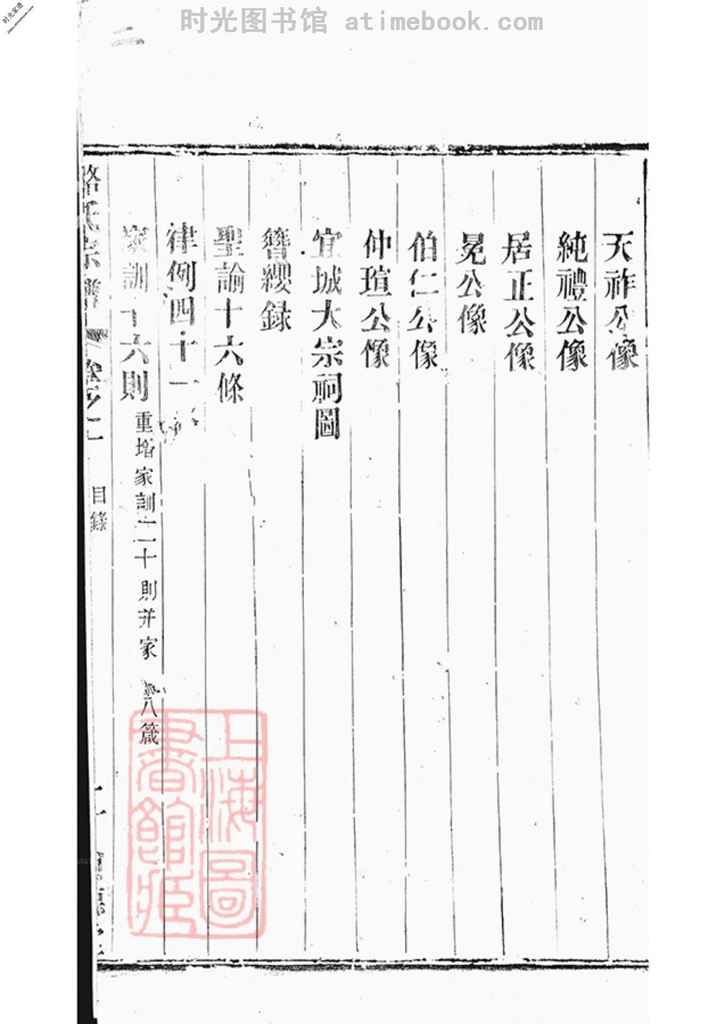 时光图书馆 atimebook.com
天祚公像
純禮公像
居正公像
冕公像
伯仁公像
仲瑄公像
宜城大宗祠圖
簪纓録
聖諭十六條
律例四十一
家訓十六則 重婼家訓二十則并家 八箴
宗譜 卷之一 目錄
上海圖書館藏